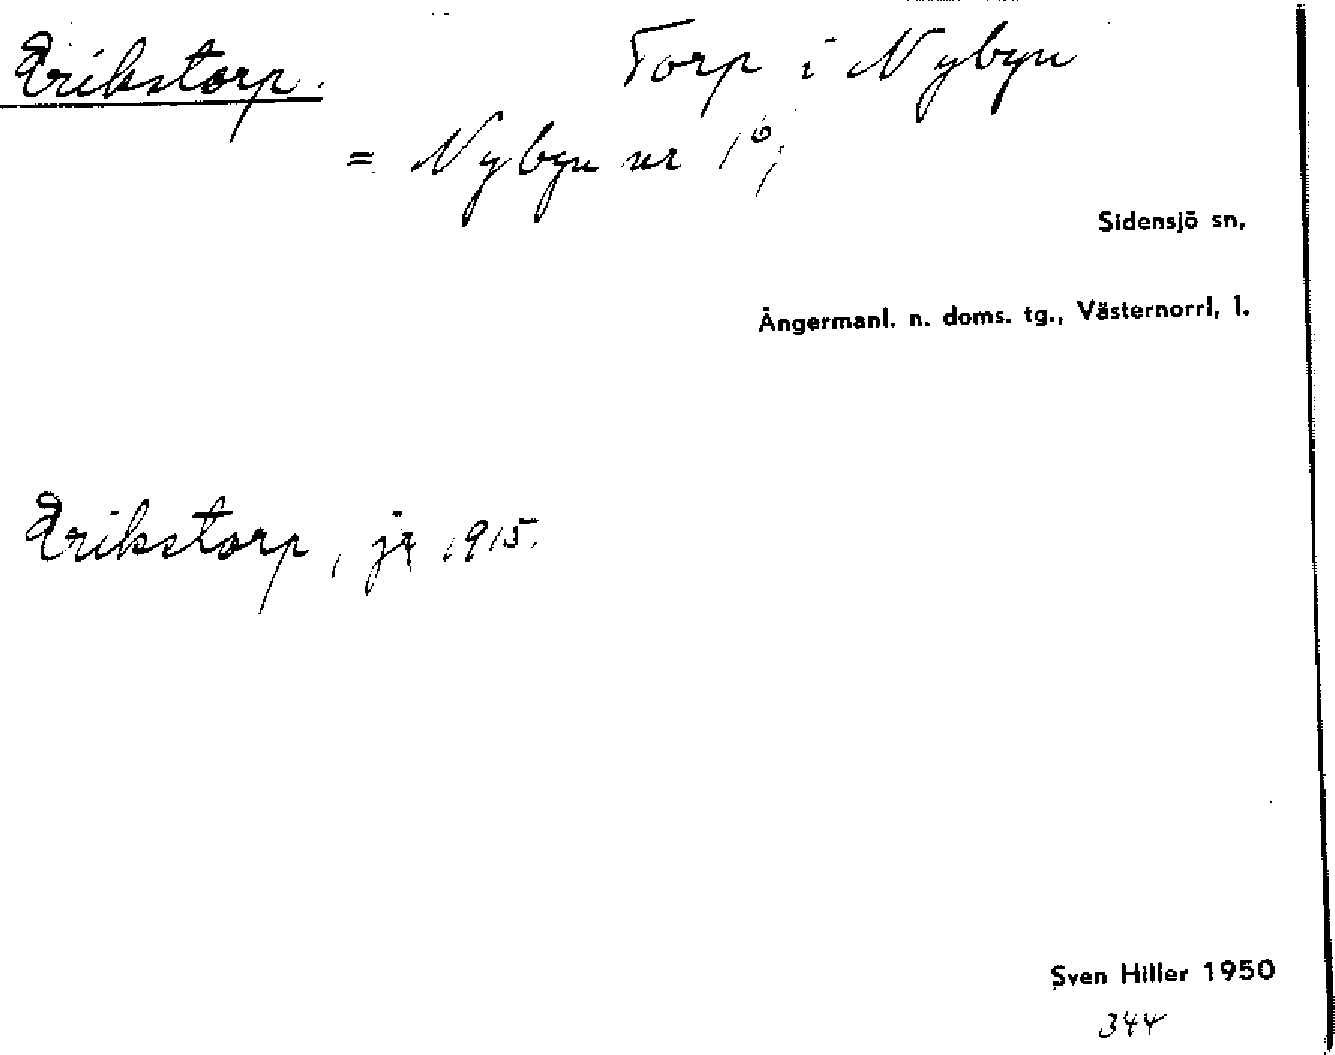 Erikstorp. Torp i Nybyn
= Nybyn nr 1⁶;
Sidensjö sn,
Ångermanl. n. doms. tg., Västernorrl. l.
Erikstorp, jr 1915.
Sven Hiller 1950
344